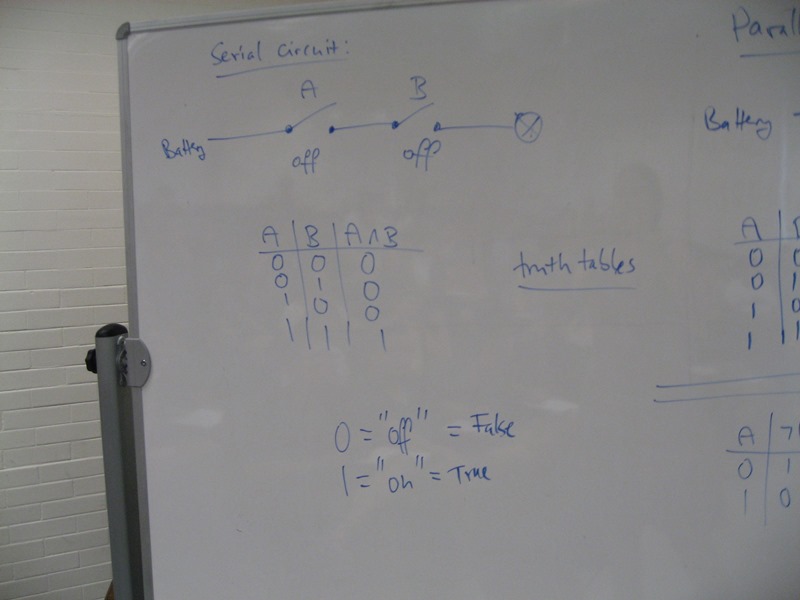 Serial Circuit:
A B
Battery
off off
A B A ∧ B
0 0 0
0 1 0
1 0 0
1 1 1
truth tables
0 = "off" = False
1 = "on" = True
Battery
A
0 0
0 1
1 0
1 1
A ¬
0 1
1 0